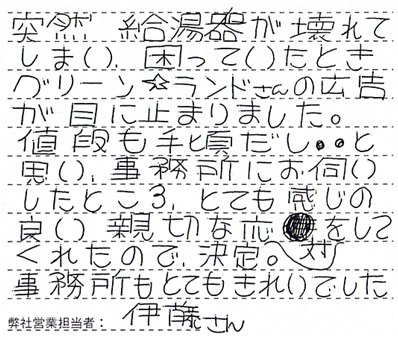 突然 給湯器が壊れて
しまい、困っていたとき
グリーン☆ランドさんの広告
が目に止まりました。
値段も手頃だし。。と
思い、事務所にお伺い
したところ、とても感じの
良い 親切な応対をして
くれたので、決定。
事務所もとてもきれいでした
弊社営業担当者： 伊藤さん